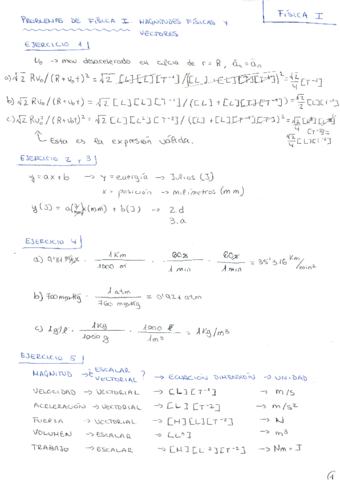 FÍSICA I
PROBLEMAS DE FÍSICA I: MAGNITUDES FÍSICAS Y
VECTORES
EJERCICIO 1
v₀ → mov desacelerado en círculo de r = R,
a) √2 Rv₀/(R+v₀t)² = √2 [L][L][T⁻¹]/([L]+[L][T⁻¹][T])² = √2/4 [T⁻¹]
b) √2 Rv₀/(R+v₀t) = √2 [L][L][T⁻¹]/([L]+[L][T⁻¹][T]) = √2/2 [L][T⁻¹]
c) √2 Rv₀²/(R+v₀t)² = √2 [L][L²][T⁻²]/([L]+[L][T⁻¹][T])² =
= √2/4 [L][T⁻²]
Esta es la expresión válida.
EJERCICIO 2 y 3
y = ax + b → y = energía → Julios (J)
x = posición → milímetros (mm)
y(J) = a(J/mm)x(mm) + b(J) → 2.d
3.a
EJERCICIO 4
a) · 1Km/1000 m · 60s/1 min · 60s/1 min = 35'316 Km/min²
b) 700mmHg · 1 atm/760 mmHg = 0'921 atm
c) 1g/l · 1Kg/1000 g · 1000 l/1m³ = 1Kg/m³
EJERCICIO 5
MAGNITUD → ¿ESCALAR VECTORIAL? → ECUACIÓN DIMENSIÓN → UNIDAD
VELOCIDAD → VECTORIAL → [L][T⁻¹] → m/s
ACELERACIÓN → VECTORIAL → [L][T⁻²] → m/s²
FUERZA → VECTORIAL → [M][L][T⁻²] → N
VOLUMEN → ESCALAR → [L³] → m³
TRABAJO → ESCALAR → [M][L²][T⁻²] → Nm = J
1